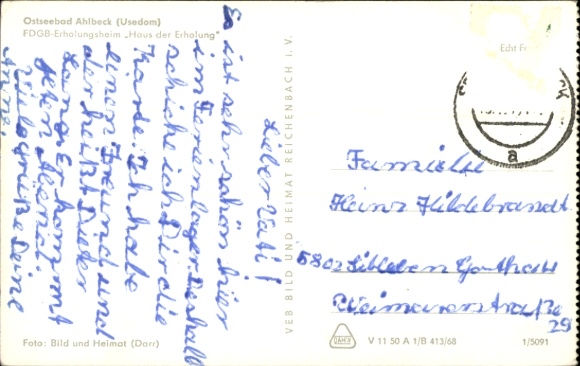 Ostseebad Ahlbeck (Usedom)
FDGB-Erholungsheim „Haus der Erholung"
Lieber Vati!
Es ist sehr schön hier
im Ferienlager. Deshalb
schicke ich Dir die
Karte. Ich habe
einen Freund und
der heißt Dieter
Lange. Er kommt
jeden
Viele Grüße Deine
VEB BILD UND HEIMAT REICHENBACH I. V.
Echt
a
Familie
Heinz Hildebrandt
5802 Siebleben
Weimarerstraße
29
Foto: Bild und Heimat (Darr)
V 11 50 A 1/B 413/68
1/5091